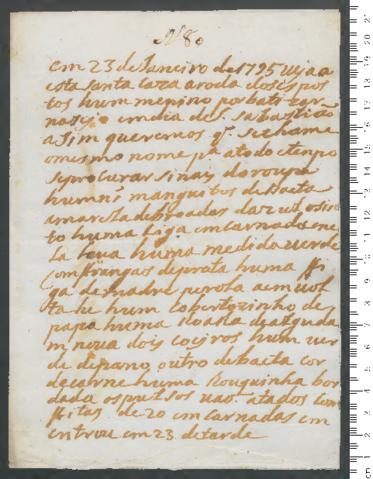 Nº 8º
em 23 de Janeiro de 1795 veja a
esta santa caza a roda dos espos
tos hum menino por bati zar
nasseo em dia de S. sabastião
asim queremos q. se chame
o mesmo nome pª a todo o tenpo
se procurar sinais da roupa
humns manguitos de baeta
amarela debroados da zul o sin
to huma liga emcarnada
leva huma medida verde
com franjas de prata huma fi
ga de madre perola
hum cobertorinho de
papa huma toalha de algudam
nova dois coeiros hum ver
de de pano outro de baeta cor
de carne huma touquinha bor
dada os pulsos vão atados com
fitas de 20 emcarnadas em
entrou em 23 de tarde
cm 1 2 3 4 5 6 7 8 9 10 11 12 13 14 15 16 17 18 19 20